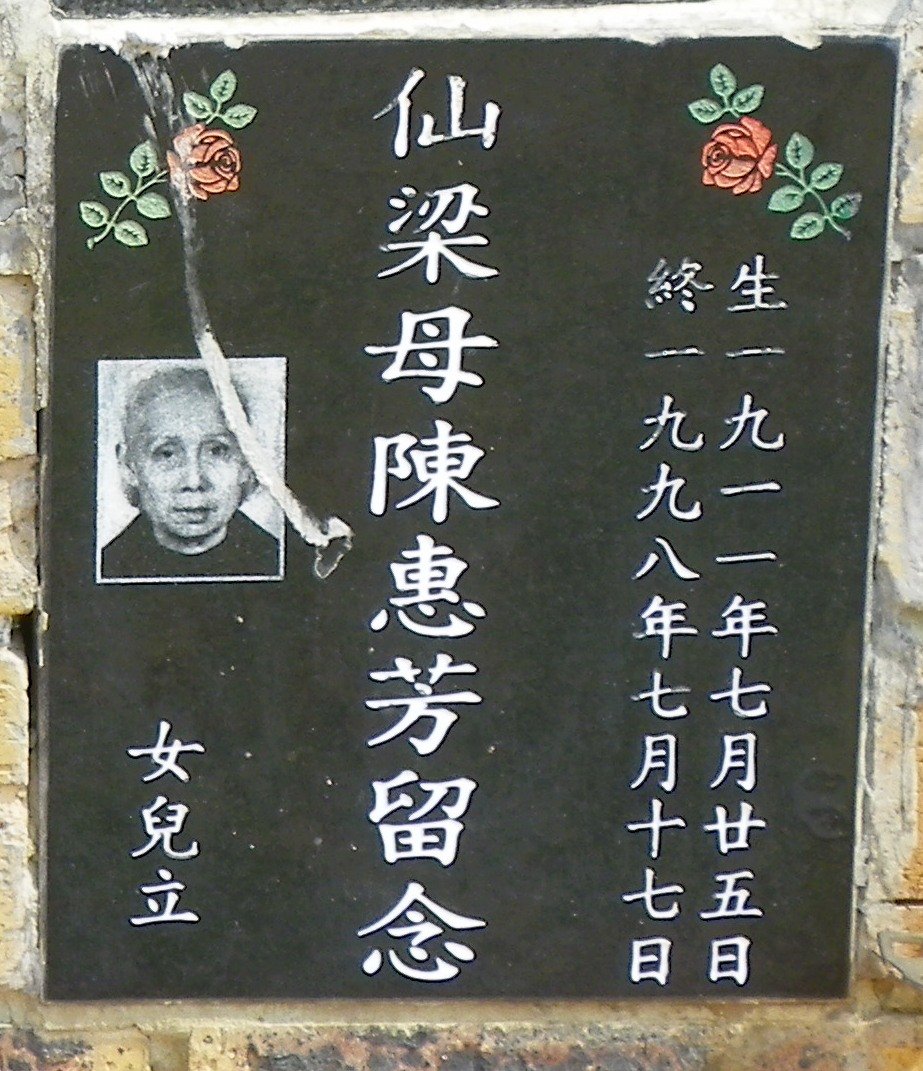 生一九一一年七月廿五日
終一九九八年七月十七日
仙梁母陳惠芳留念
女兒立